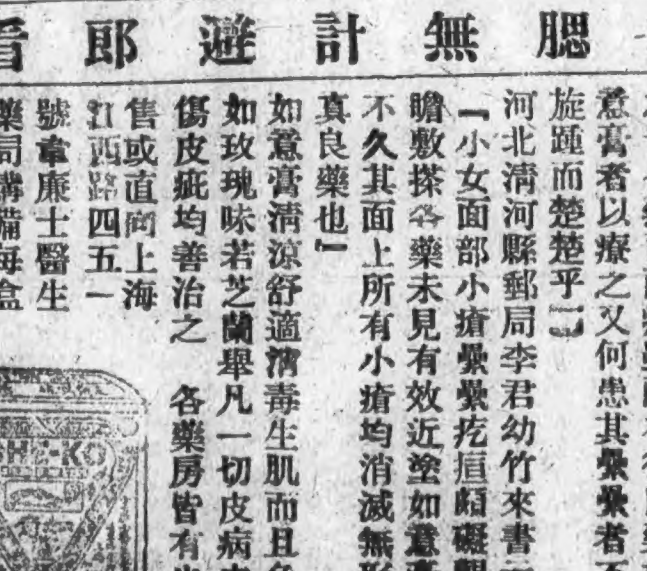 腮無計避郎看
意膏者以療之又何患其纍纍者不
旋踵而楚楚乎
河北清河縣郵局李君幼竹來書
『小女面部小瘡纍纍疙疸頗礙觀
瞻敷搽各藥未見有效近塗如意膏
不久其面上所有小瘡均消滅無形
真良藥也』
如意膏清涼舒適消毒生肌而且色
如玫瑰味若芝蘭舉凡一切皮病
傷皮疵均善治之 各藥房皆有
售或直向上海
江西路四五一
號韋廉士醫生
藥局購備每盒